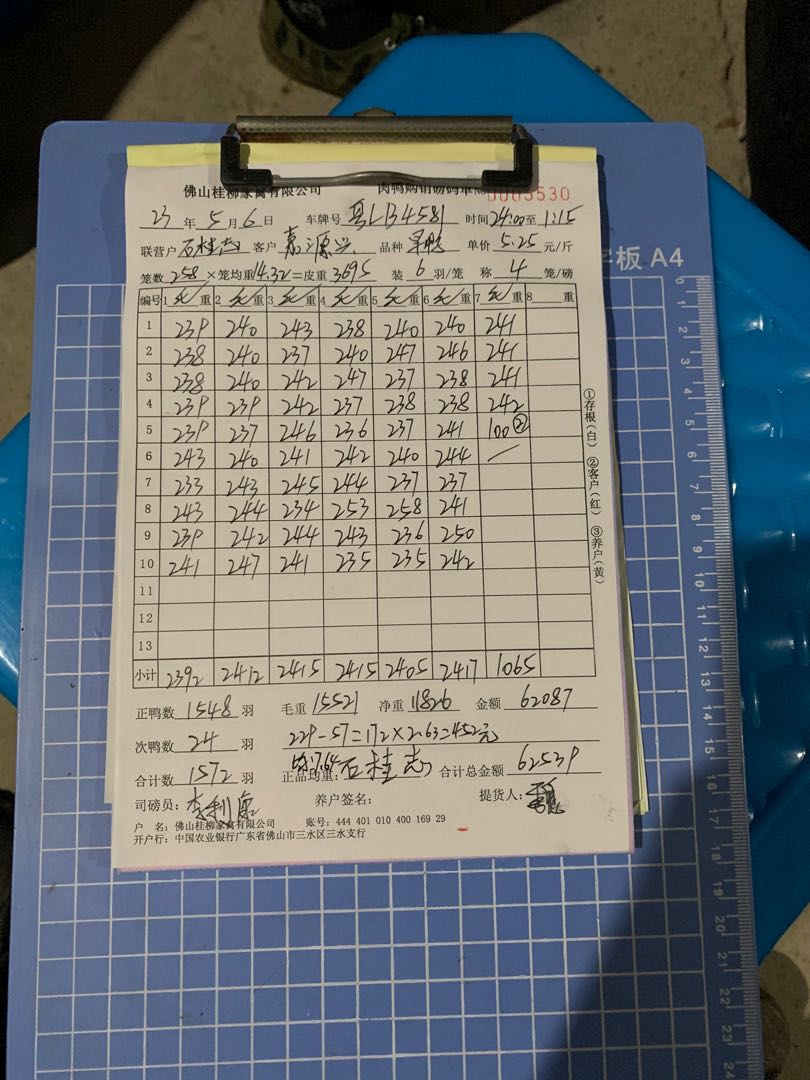 佛山桂柳家禽有限公司 肉鸭购销磅码单 No 0003530
23 年 5 月 6 日 车牌号 粤LB4581 时间 24:00 至 1:15
联营户 石桂志 客户 嘉源兴 品种 单价 5.25 元/斤
笼数 258 × 笼均重 14.32 = 皮重 3695 装 6 羽/笼 称 4 笼/磅
编号 1 毛 重 2 毛 重 3 毛 重 4 毛 重 5 毛 重 6 毛 重 7 毛 重 8 重
1 239 240 243 238 240 240 241
2 238 240 237 240 247 246 241
3 238 240 242 247 237 238 241
4 239 239 242 237 238 238 242
5 239 237 246 236 237 241 100②
6 243 240 241 242 240 244 /
7 233 243 245 244 237 237
8 243 244 234 253 258 241
9 239 242 244 243 236 250
10 241 247 241 235 235 242
11
12
13
小计 2392 2412 2415 2415 2405 2417 1065
①存根(白) ②客户(红) ③养户(黄)
正鸭数 1548 羽 毛重 15521 净重 11826 金额 62087
次鸭数 24 羽 229-57=172×2.63=452元
合计数 1572 羽 正品均重: 7.64 石桂志 合计总金额 62539
司磅员: 李利康 养户签名: 提货人:
户 名: 佛山桂柳家禽有限公司 账号: 444 401 010 400 169 29
开户行: 中国农业银行广东省佛山市三水区三水支行
字板 A4
0 1 2 3 4 5 6 7 8 9 10 11 12 13 14 15 16 17 18 19 20 21 22 23 24